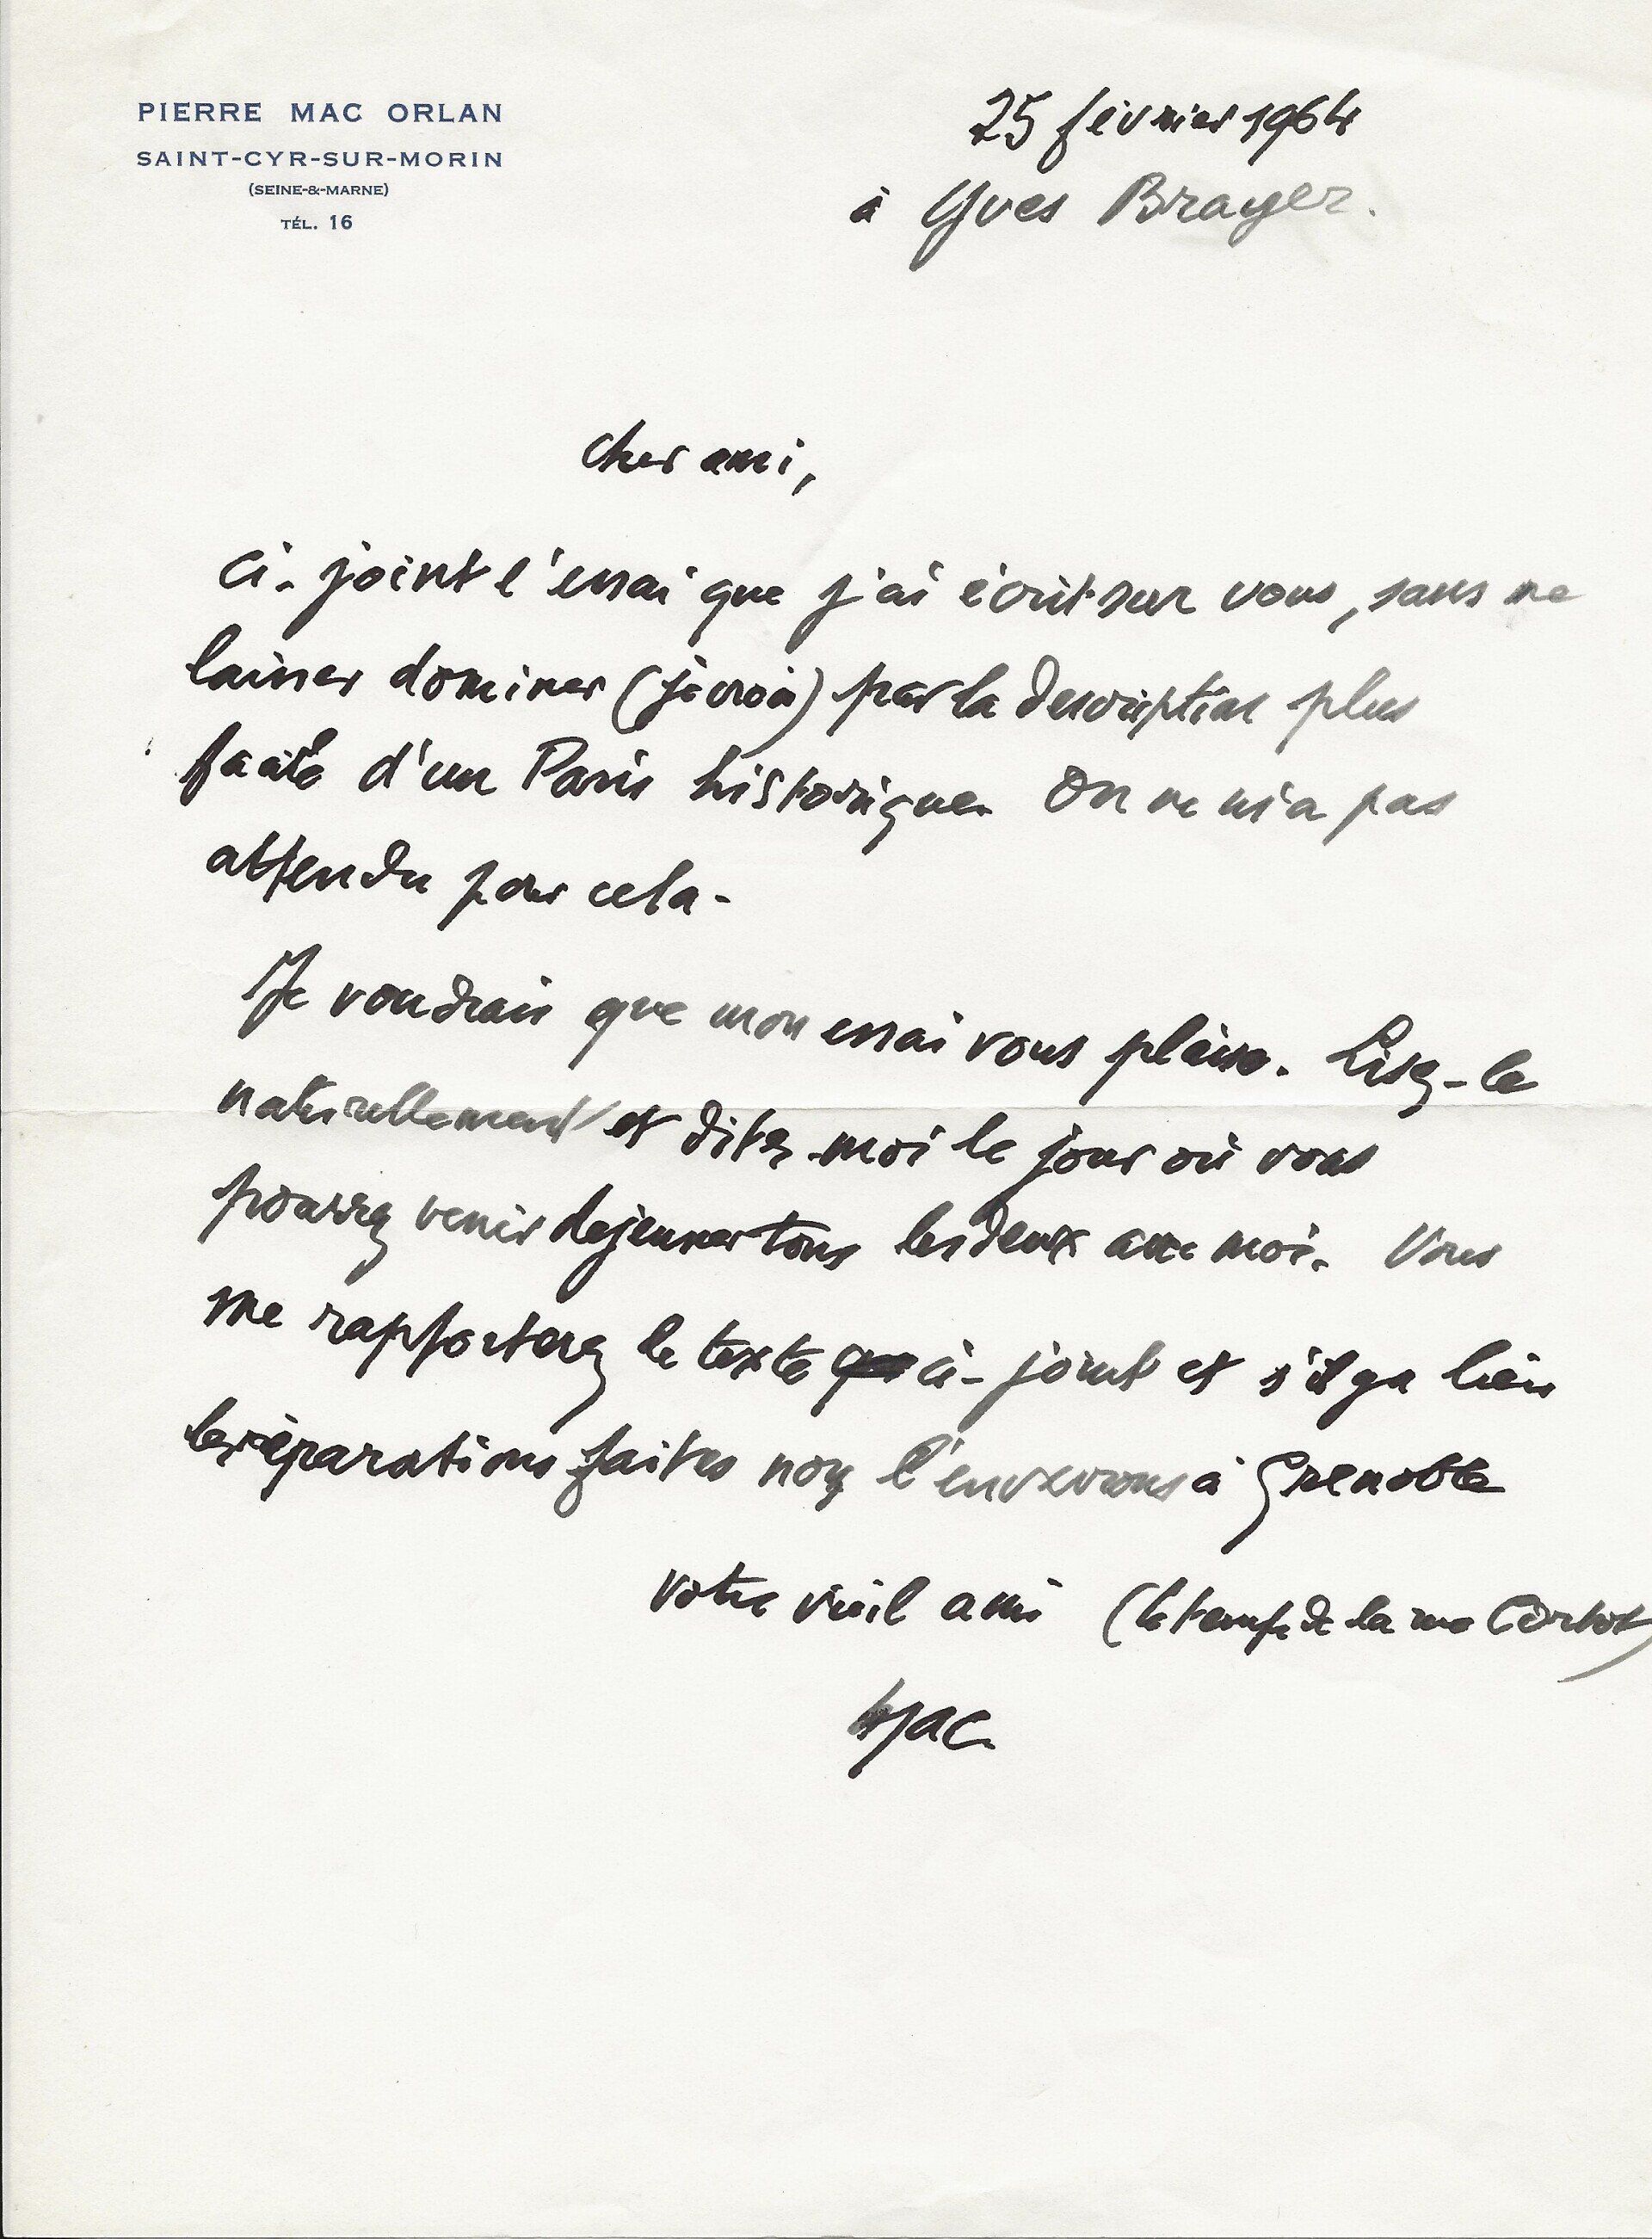 PIERRE MAC ORLAN
SAINT-CYR-SUR-MORIN
(SEINE-&-MARNE)
TÉL. 16
25 février 1964
à Yves Brayer.
Cher ami,
Ci-joint l'essai que j'ai écrit sur vous, sans me
laisser dominer (je crois) par la description plus
facile d'un Paris historique. On ne m'a pas
attendu pour cela-
Je voudrais que mon essai vous plaise. Lisez-le
naturellement et dites-moi le jour où vous
pourrez venir dejeuner tous les deux avec moi. Vous
me rapporterez le texte ci-joint et s'il y a lieu
les réparations faites nous l'enverrons à Grenoble
votre vieil ami (le temps de la rue Cortot)
Mac.